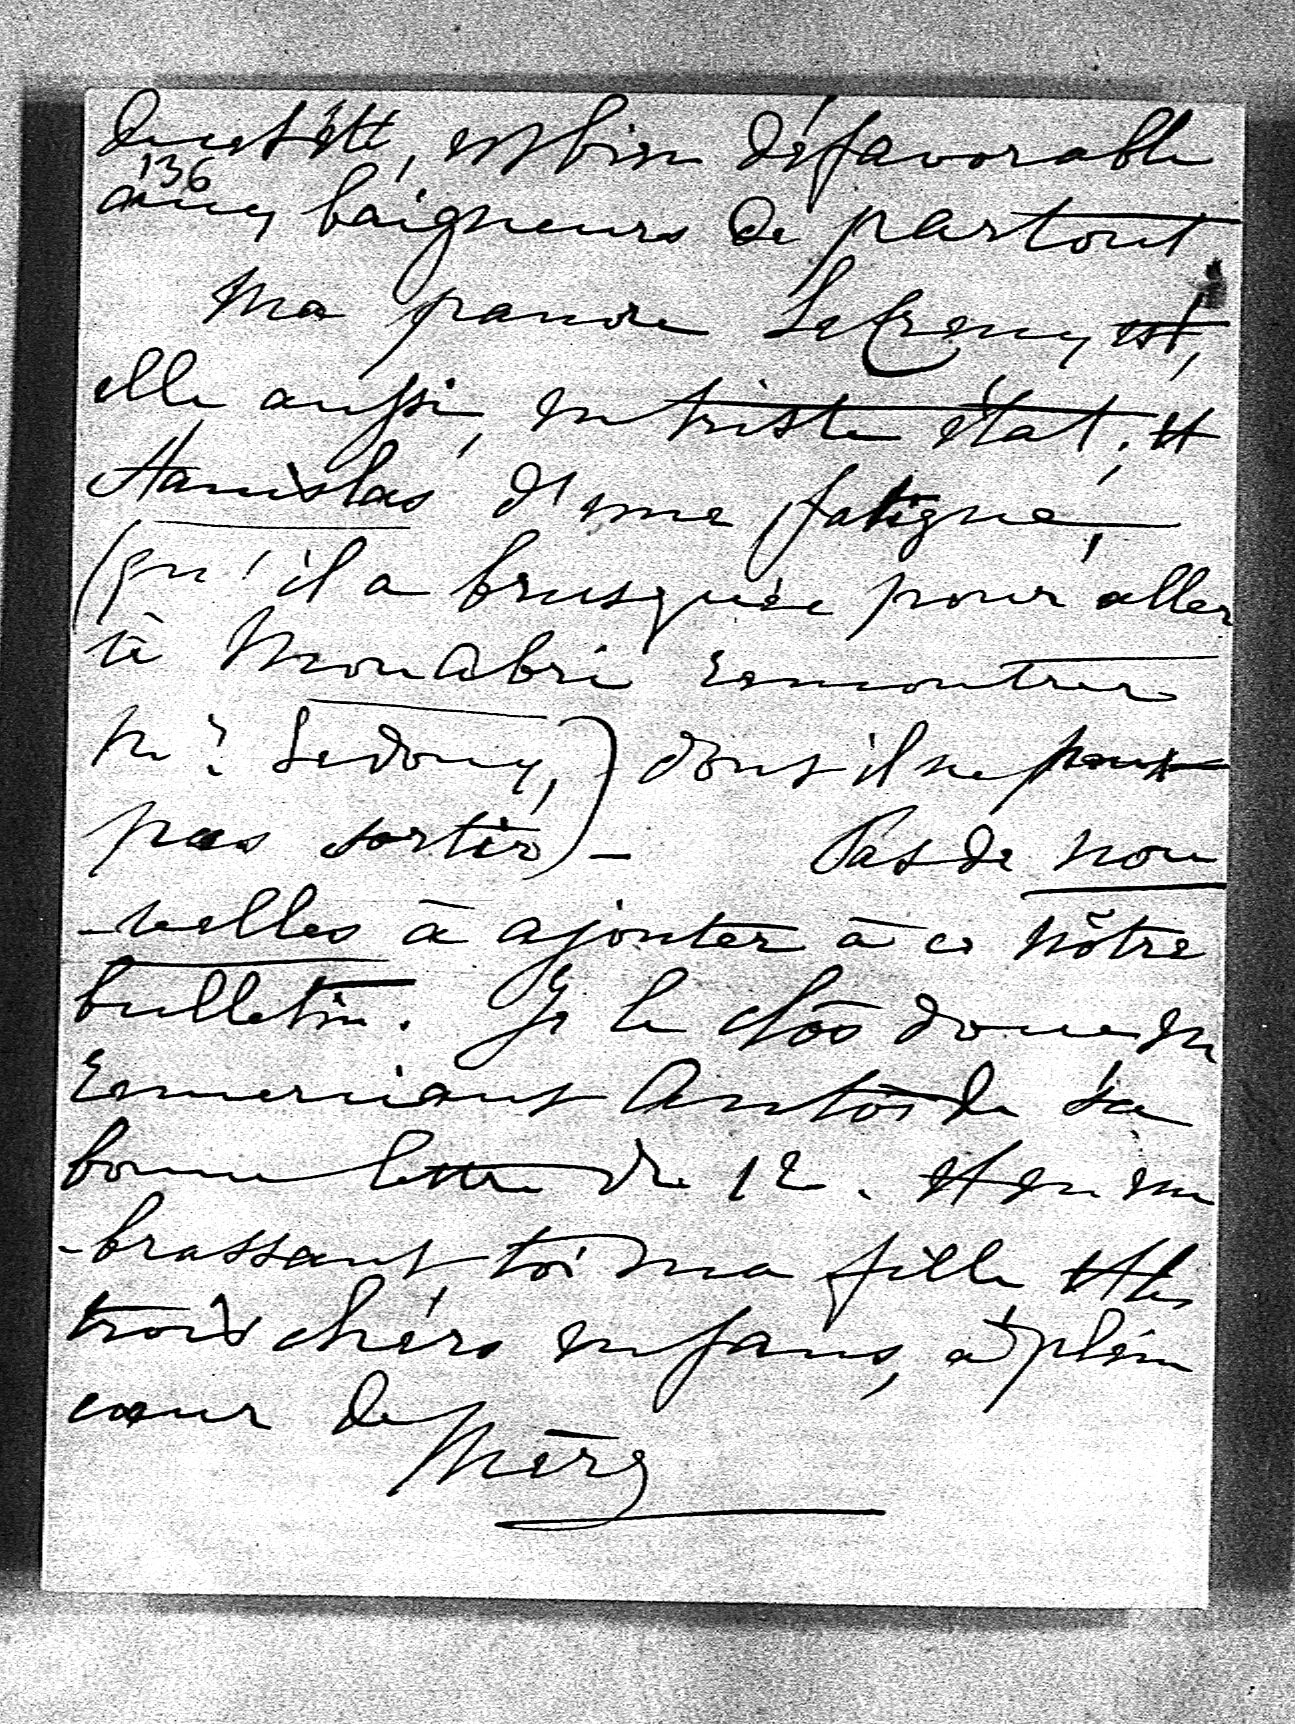 de cet été, est bien défavorable
136
aux baigneurs de partout
Ma pauvre LeCreux est,
elle aussi, en triste état, et
Stanislas d'une fatigue,
(qu'il a brusquée pour aller
à Mon Abri rencontrer
Mr Ledoux,) dont il ne peut
pas sortir) — Pas de nou
-velles à ajouter à ce nôtre
bulletin. Je le clos donc en
remerciant de sa
bonne lettre du 12. et en em
-brassant toi ma fille et les
trois chers enfans, à plein
cœur de
Mère